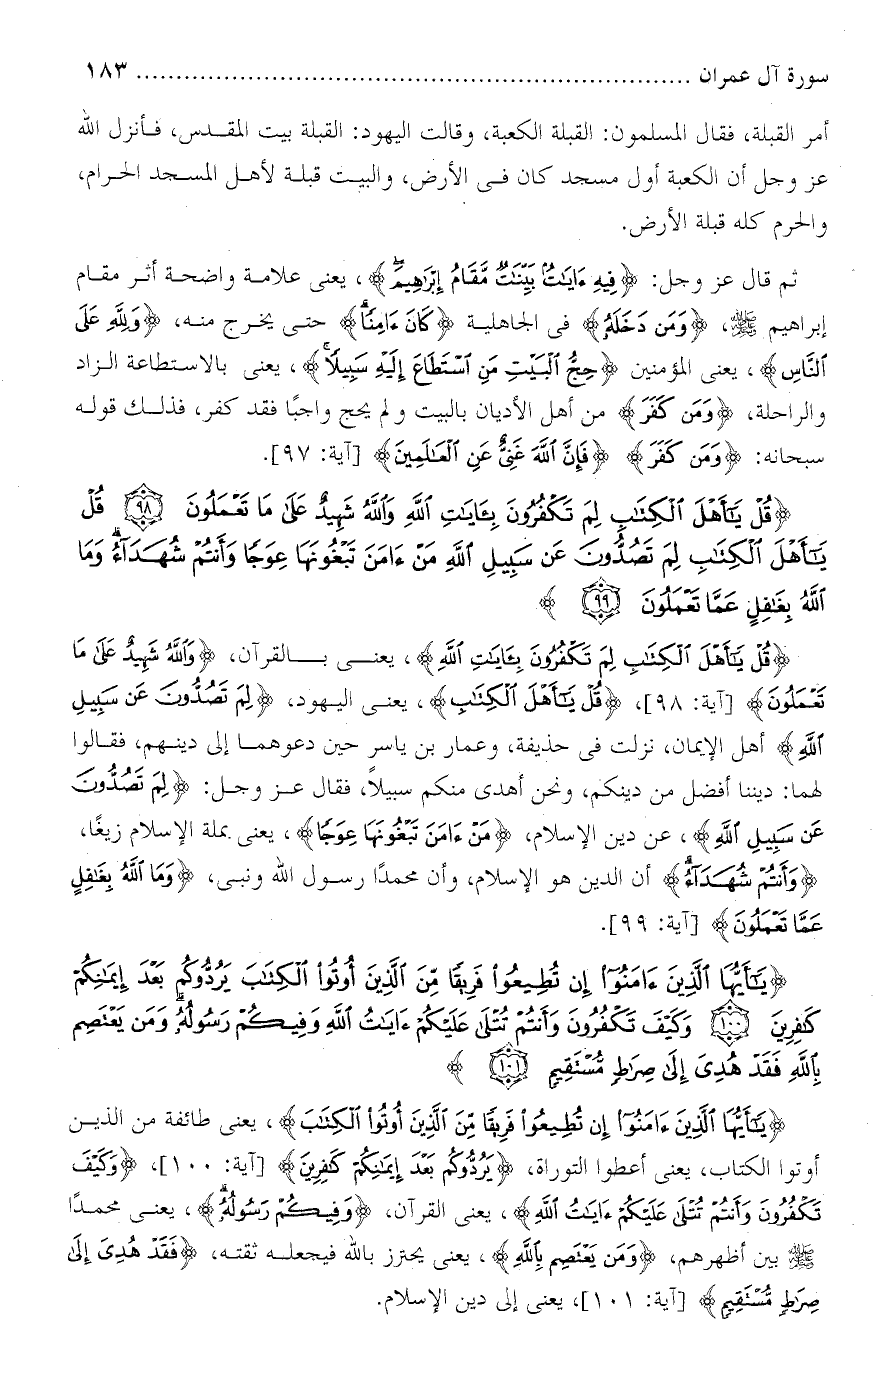 سورة آل عمران ..................................................................... ١٨٣
أمر القبلة، فقال المسلمون: القبلة الكعبة، وقالت اليهود: القبلة بيت المقدس، فأنزل الله
عز وجل أن الكعبة أول مسجد كان فى الأرض، والبيت قبلة لأهل المسجد الحرام،
والحرم كله قبلة الأرض.
ثم قال عز وجل: ﴿فِيهِ ءَايَٰتُۢ بَيِّنَٰتٞ مَّقَامُ إِبۡرَٰهِيمَۖ﴾، يعنى علامة واضحة أثر مقام
إبراهيم ﷺ، ﴿وَمَن دَخَلَهُۥ﴾ فى الجاهلية ﴿كَانَ ءَامِنٗاۗ﴾ حتى يخرج منه، ﴿وَلِلَّهِ عَلَى
ٱلنَّاسِ﴾، يعنى المؤمنين ﴿حِجُّ ٱلۡبَيۡتِ مَنِ ٱسۡتَطَاعَ إِلَيۡهِ سَبِيلٗاۚ﴾، يعنى بالاستطاعة الزاد
والراحلة، ﴿وَمَن كَفَرَ﴾ من أهل الأديان بالبيت ولم يحج واجبًا فقد كفر، فذلك قوله
سبحانه: ﴿وَمَن كَفَرَ﴾ ﴿فَإِنَّ ٱللَّهَ غَنِيٌّ عَنِ ٱلۡعَٰلَمِينَ﴾ [آية: ٩٧].
﴿قُلۡ يَٰٓأَهۡلَ ٱلۡكِتَٰبِ لِمَ تَكۡفُرُونَ بِـَٔايَٰتِ ٱللَّهِ وَٱللَّهُ شَهِيدٌ عَلَىٰ مَا تَعۡمَلُونَ ٩٨ قُلۡ
يَٰٓأَهۡلَ ٱلۡكِتَٰبِ لِمَ تَصُدُّونَ عَن سَبِيلِ ٱللَّهِ مَنۡ ءَامَنَ تَبۡغُونَهَا عِوَجٗا وَأَنتُمۡ شُهَدَآءُۗ وَمَا
ٱللَّهُ بِغَٰفِلٍ عَمَّا تَعۡمَلُونَ ٩٩﴾
﴿قُلۡ يَٰٓأَهۡلَ ٱلۡكِتَٰبِ لِمَ تَكۡفُرُونَ بِـَٔايَٰتِ ٱللَّهِ﴾، يعنى بالقرآن، ﴿وَٱللَّهُ شَهِيدٌ عَلَىٰ مَا
تَعۡمَلُونَ﴾ [آية: ٩٨]، ﴿قُلۡ يَٰٓأَهۡلَ ٱلۡكِتَٰبِ﴾، يعنى اليهود، ﴿لِمَ تَصُدُّونَ عَن سَبِيلِ
ٱللَّهِ﴾ أهل الإيمان، نزلت فى حذيفة، وعمار بن ياسر حين دعوهما إلى دينهم، فقالوا
لهما: ديننا أفضل من دينكم، ونحن أهدى منكم سبيلاً، فقال عز وجل: ﴿لِمَ تَصُدُّونَ
عَن سَبِيلِ ٱللَّهِ﴾، عن دين الإسلام، ﴿مَنۡ ءَامَنَ تَبۡغُونَهَا عِوَجٗا﴾، يعنى بملة الإسلام زيغًا،
﴿وَأَنتُمۡ شُهَدَآءُۗ﴾ أن الدين هو الإسلام، وأن محمدًا رسول الله ونبى، ﴿وَمَا ٱللَّهُ بِغَٰفِلٍ
عَمَّا تَعۡمَلُونَ﴾ [آية: ٩٩].
﴿يَٰٓأَيُّهَا ٱلَّذِينَ ءَامَنُوٓاْ إِن تُطِيعُواْ فَرِيقٗا مِّنَ ٱلَّذِينَ أُوتُواْ ٱلۡكِتَٰبَ يَرُدُّوكُم بَعۡدَ إِيمَٰنِكُمۡ
كَٰفِرِينَ ١٠٠ وَكَيۡفَ تَكۡفُرُونَ وَأَنتُمۡ تُتۡلَىٰ عَلَيۡكُمۡ ءَايَٰتُ ٱللَّهِ وَفِيكُمۡ رَسُولُهُۥۗ وَمَن يَعۡتَصِم
بِٱللَّهِ فَقَدۡ هُدِيَ إِلَىٰ صِرَٰطٖ مُّسۡتَقِيمٖ ١٠١﴾
﴿يَٰٓأَيُّهَا ٱلَّذِينَ ءَامَنُوٓاْ إِن تُطِيعُواْ فَرِيقٗا مِّنَ ٱلَّذِينَ أُوتُواْ ٱلۡكِتَٰبَ﴾، يعنى طائفة من الذين
أوتوا الكتاب، يعنى أعطوا التوراة، ﴿يَرُدُّوكُم بَعۡدَ إِيمَٰنِكُمۡ كَٰفِرِينَ﴾ [آية: ١٠٠]، ﴿وَكَيۡفَ
تَكۡفُرُونَ وَأَنتُمۡ تُتۡلَىٰ عَلَيۡكُمۡ ءَايَٰتُ ٱللَّهِ﴾، يعنى القرآن، ﴿وَفِيكُمۡ رَسُولُهُۥۗ﴾، يعنى محمدًا
ﷺ بين أظهرهم، ﴿وَمَن يَعۡتَصِم بِٱللَّهِ﴾، يعنى يحترز بالله فيجعله ثقته، ﴿فَقَدۡ هُدِيَ إِلَىٰ
صِرَٰطٖ مُّسۡتَقِيمٖ﴾ [آية: ١٠١]، يعنى إلى دين الإسلام.